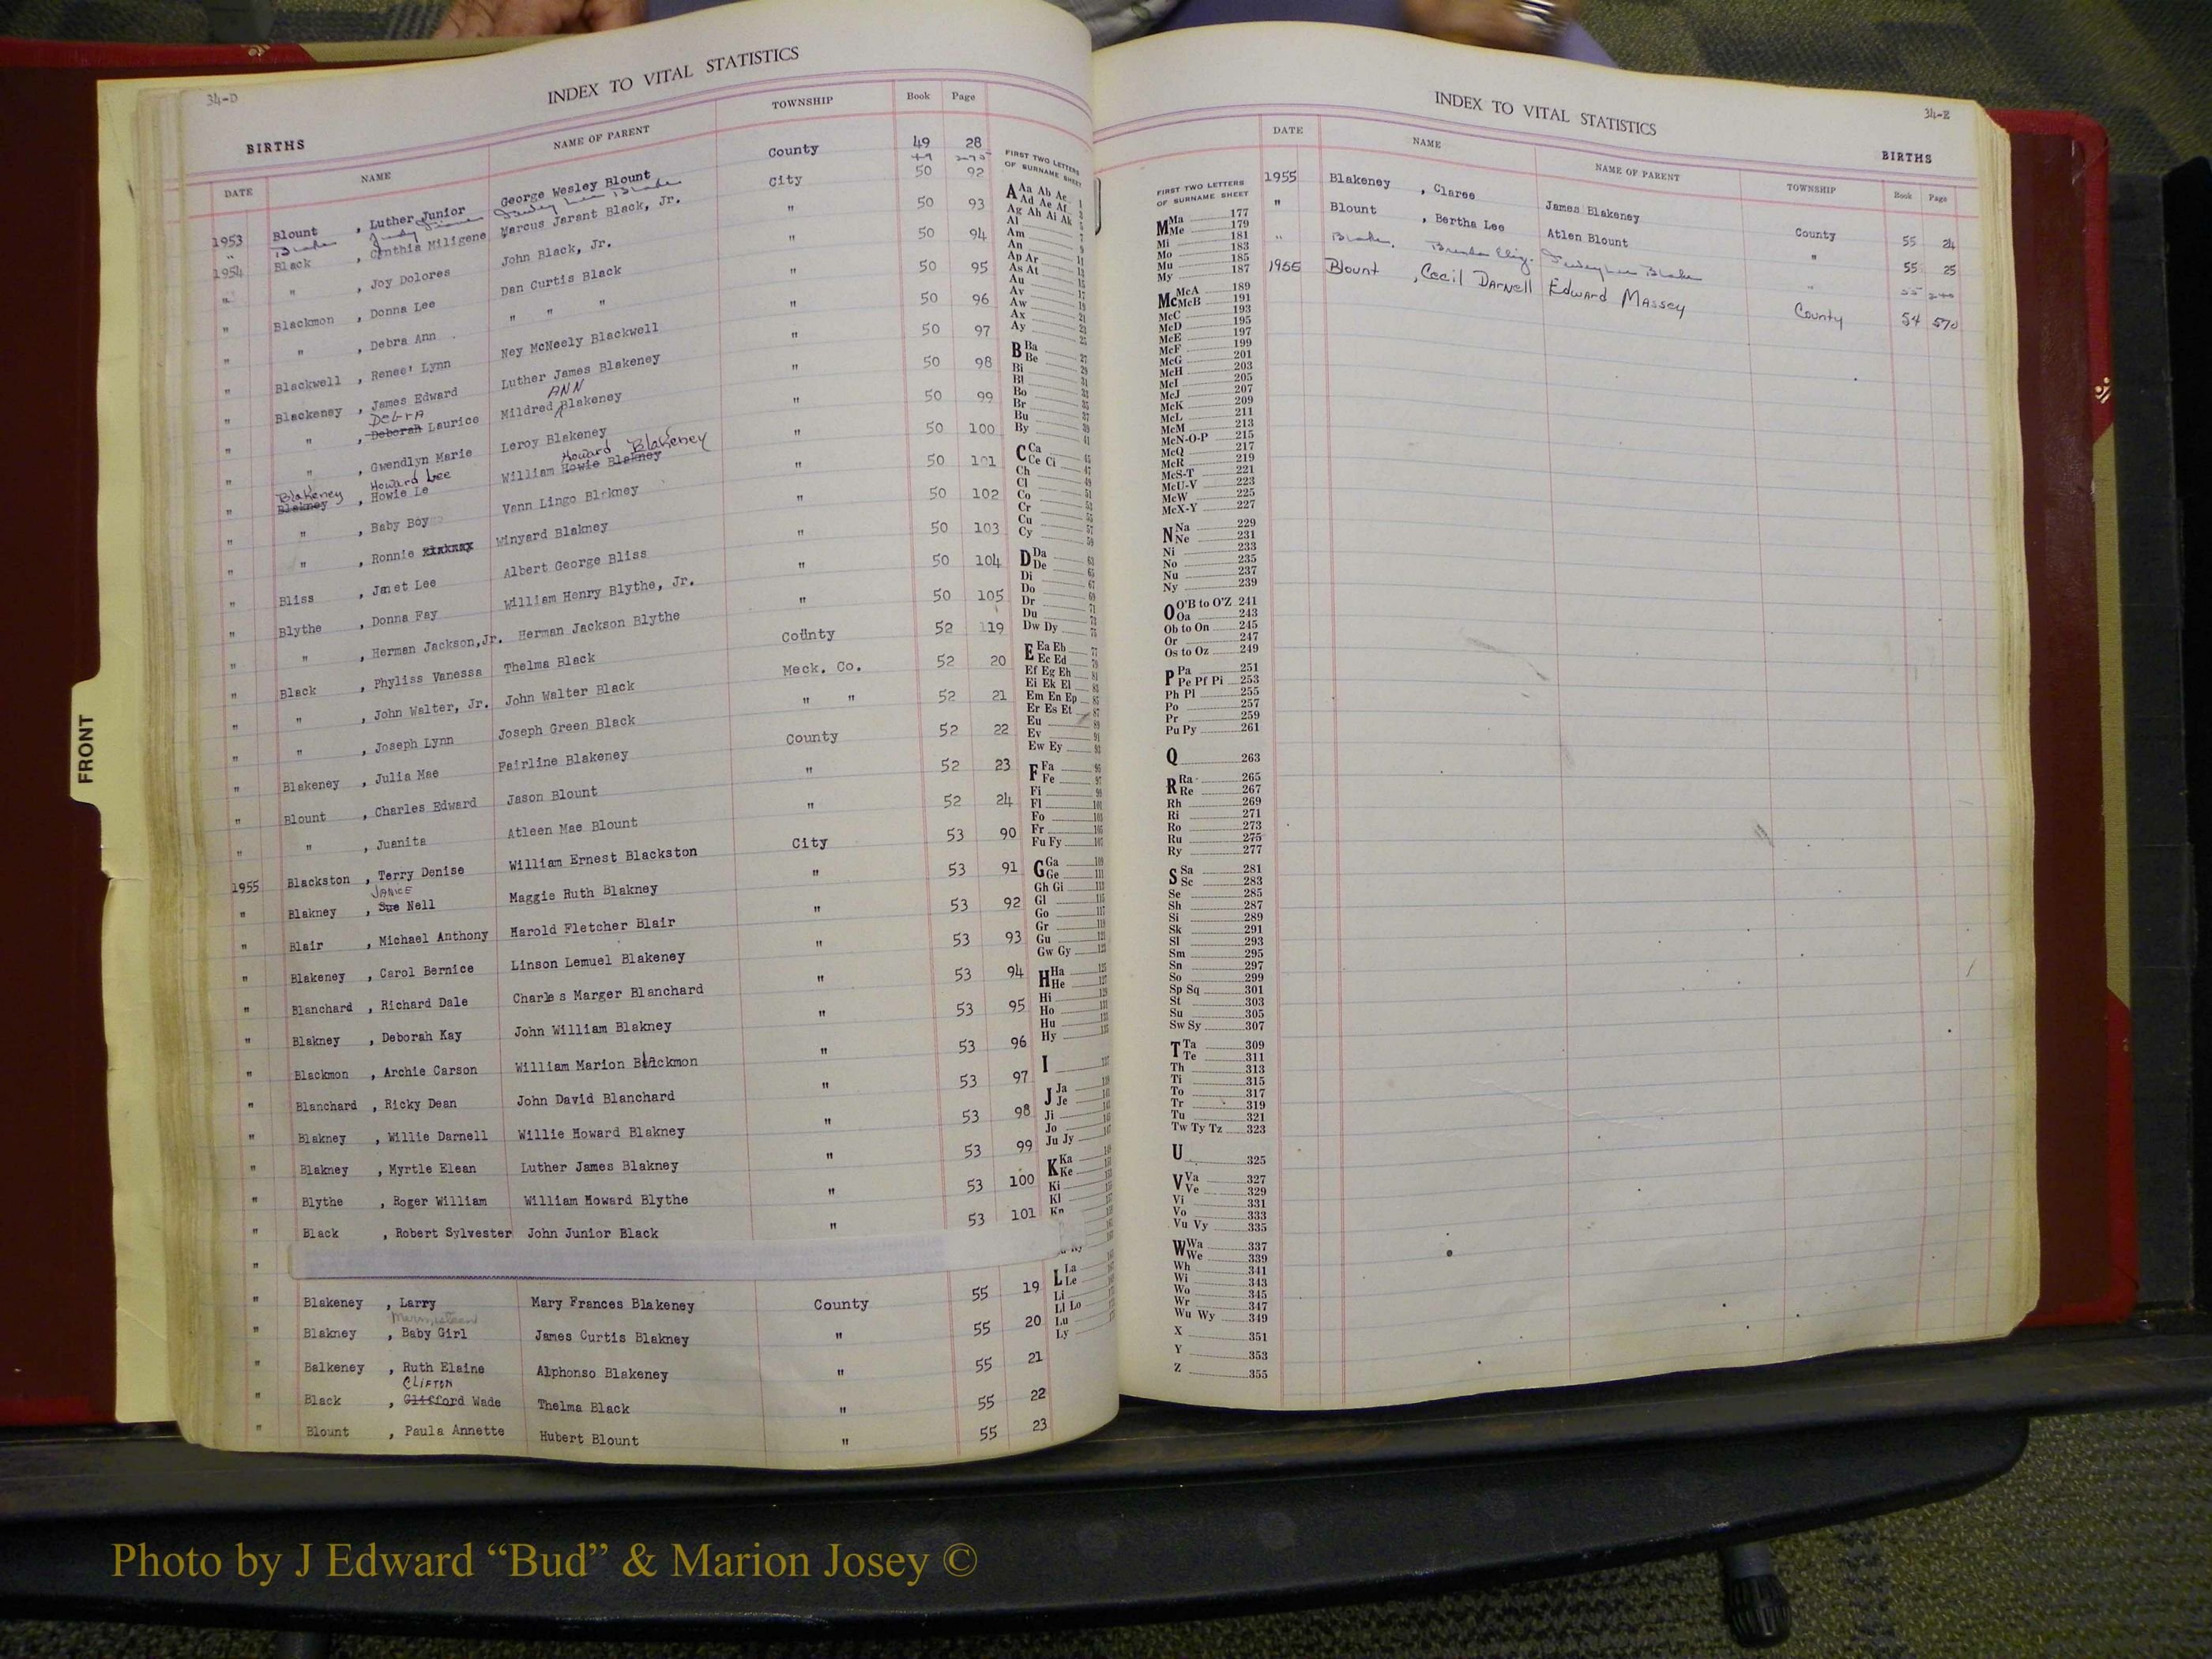 34-D
INDEX TO VITAL STATISTICS
BIRTHS
DATE NAME NAME OF PARENT TOWNSHIP Book Page
1953 Blount , Luther Junior George Wesley Blount County 49 28
" Blake Judy
1954 Black , Cynthia Miligene Marcus Jarant Black, Jr. City 50 92
" " , Joy Dolores John Black, Jr. " 50 93
" Blackmon , Donna Lee Dan Curtis Black " 50 94
" " , Debra Ann " " " " 50 95
" Blackwell , Renee' Lynn Ney McNeely Blackwell " 50 96
" Blackeney , James Edward Luther James Blakeney " 50 97
" " , Deborah DEbrA Laurice Mildred ANN Blakeney " 50 98
" " , Gwendlyn Marie Leroy Blakeney " 50 99
" Blakney Blakeney , Howie Le Howard Lee William Howie Blakney Howard Blakeney " 50 100
" " , Baby Boy Vann Lingo Blakney " 50 101
" " , Ronnie Winyard Blakney " 50 102
" Bliss , Janet Lee Albert George Bliss " 50 103
" Blythe , Donna Fay William Henry Blythe, Jr. " 50 104
" " , Herman Jackson,Jr. Herman Jackson Blythe " 50 105
" Black , Phyliss Vanessa Thelma Black County 52 119
" " , John Walter, Jr. John Walter Black Meck. Co. 52 20
" " , Joseph Lynn Joseph Green Black " " 52 21
" Blakeney , Julia Mae Fairline Blakeney County 52 22
" Blount , Charles Edward Jason Blount " 52 23
" " , Juanita Atleen Mae Blount " 52 24
1955 Blackston , Terry Denise William Ernest Blackston City 53 90
" Blakney , Sue JANICE Nell Maggie Ruth Blakney " 53 91
" Blair , Michael Anthony Harold Fletcher Blair " 53 92
" Blakeney , Carol Bernice Linson Lemuel Blakeney " 53 93
" Blanchard , Richard Dale Charles Marger Blanchard " 53 94
" Blakney , Deborah Kay John William Blakney " 53 95
" Blackmon , Archie Carson William Marion Blackmon " 53 96
" Blanchard , Ricky Dean John David Blanchard " 53 97
" Blakney , Willie Darnell Willie Howard Blakney " 53 98
" Blakney , Myrtle Elean Luther James Blakney " 53 99
" Blythe , Roger William William Howard Blythe " 53 100
" Black , Robert Sylvester John Junior Black " 53 101
"
" Blakeney , Larry Mary Frances Blakeney County 55 19
" Blakney , Baby Girl James Curtis Blakney " 55 20
" Balkeney , Ruth Elaine Alphonso Blakeney " 55 21
" Black , Clifford CLIFTON Wade Thelma Black " 55 22
" Blount , Paula Annette Hubert Blount " 55 23
FIRST TWO LETTERS
OF SURNAME SHEET
A Aa Ab Ac 1
Ad Ae Af 3
Ag Ah Ai Ak 5
Al 7
Am 9
An 11
Ap Ar 13
As At 15
Au 17
Av 19
Aw 21
Ax 23
Ay 25
B Ba 27
Be 29
Bi 29
Bl 31
Bo 33
Br 35
Bu 39
By 41
C Ca 45
Ce Ci 47
Ch 49
Cl 51
Co 53
Cr 55
Cu 57
Cy 59
D Da 63
De 65
Di 67
Do 69
Dr 71
Du 73
Dw Dy 75
E Ea Eb 77
Ec Ed 79
Ef Eg Eh 81
Ei Ek El 83
Em En Ep 85
Er Es Et 87
Eu 89
Ev 91
Ew Ey 93
F Fa 95
Fe 97
Fi 99
Fl 101
Fo 103
Fr 105
Fu Fy 107
G Ga 109
Ge 111
Gh Gi 113
Gl 115
Go 117
Gr 119
Gu 121
Gw Gy 123
H Ha 125
He 127
Hi 129
Ho 131
Hu 133
Hy 135
I 137
J Ja
Je
Ji
Jo
Ju Jy
K Ka
Ke
Ki
Kl
Kn
L La
Le
Li
Ll Lo
Lu
Ly
FRONT
34-E
INDEX TO VITAL STATISTICS
BIRTHS
DATE NAME NAME OF PARENT TOWNSHIP Book Page
1955 Blakeney , Claree James Blakeney County 55 24
" Blount , Bertha Lee Atlen Blount " 55 25
" Blake, Brenda Eliz. Blake " 55
1955 Blount , Cecil DArnell Edward Massey County 54 570
FIRST TWO LETTERS
OF SURNAME SHEET
M Ma 177
Me 179
Mi 181
Mo 183
Mu 185
My 187
Mc McA 189
McB 191
McC 193
McD 195
McE 197
McF 199
McG 201
McH 203
McI 205
McJ 207
McK 209
McL 211
McM 213
McN-O-P 215
McQ 217
McR 219
McS-T 221
McU-V 223
McW 225
McX-Y 227
N Na 229
Ne 231
Ni 233
No 235
Nu 237
Ny 239
O O'B to O'Z 241
Oa 243
Ob to On 245
Or 247
Os to Oz 249
P Pa 251
Pe Pf Pi 253
Ph Pl 255
Po 257
Pr 259
Pu Py 261
Q 263
R Ra 265
Re 267
Rh 269
Ri 271
Ro 273
Ru 275
Ry 277
S Sa 281
Sc 283
Se 285
Sh 287
Si 289
Sk 291
Sl 293
Sm 295
Sn 297
So 299
Sp Sq 301
St 303
Su 305
Sw Sy 307
T Ta 309
Te 311
Th 313
Ti 315
To 317
Tr 319
Tu 321
Tw Ty Tz 323
U 325
V Va 327
Ve 329
Vi 331
Vo 333
Vu Vy 335
W Wa 337
We 339
Wh 341
Wi 343
Wo 345
Wr 347
Wu Wy 349
X 351
Y 353
Z 355
Photo by J Edward “Bud” & Marion Josey ©